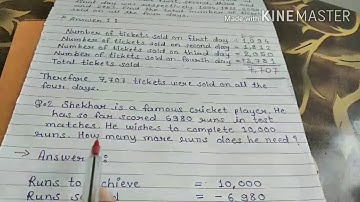 Made with KINEMASTER
→ Answer 1:
Number of tickets sold on first day = 1,094
Number of tickets sold on second day = 1,812
Number of tickets sold on third day = 2,050
Number of tickets sold on fourth day = +2,751
Total tickets sold 7,707
Therefore 7,707 tickets were sold on all the
four days.
Q.2 Shekhar is a famous cricket player. He
has so far scored 6980 runs in test
matches. He wishes to complete 10,000
runs. How many more runs does he need?
→ Answer :
Runs to achieve = 10,000
Runs = - 6,980